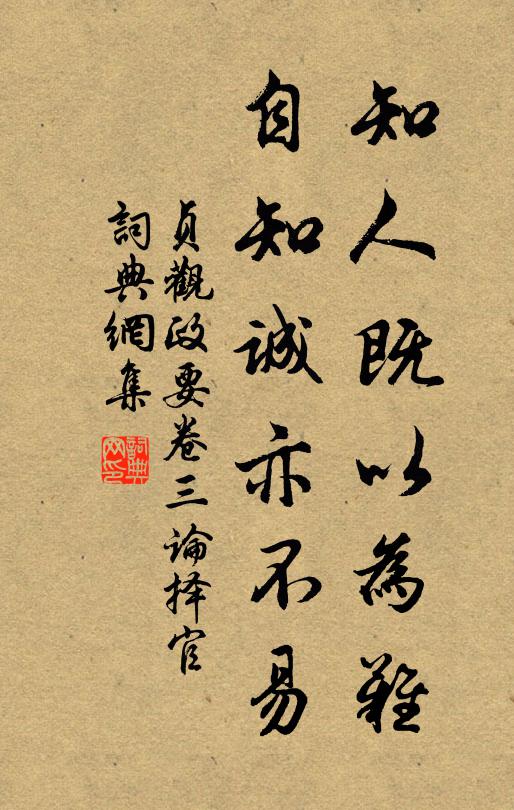 知人既以為難
自知誠亦不易
貞觀政要卷三論择官
詞典網集
詞典
网印